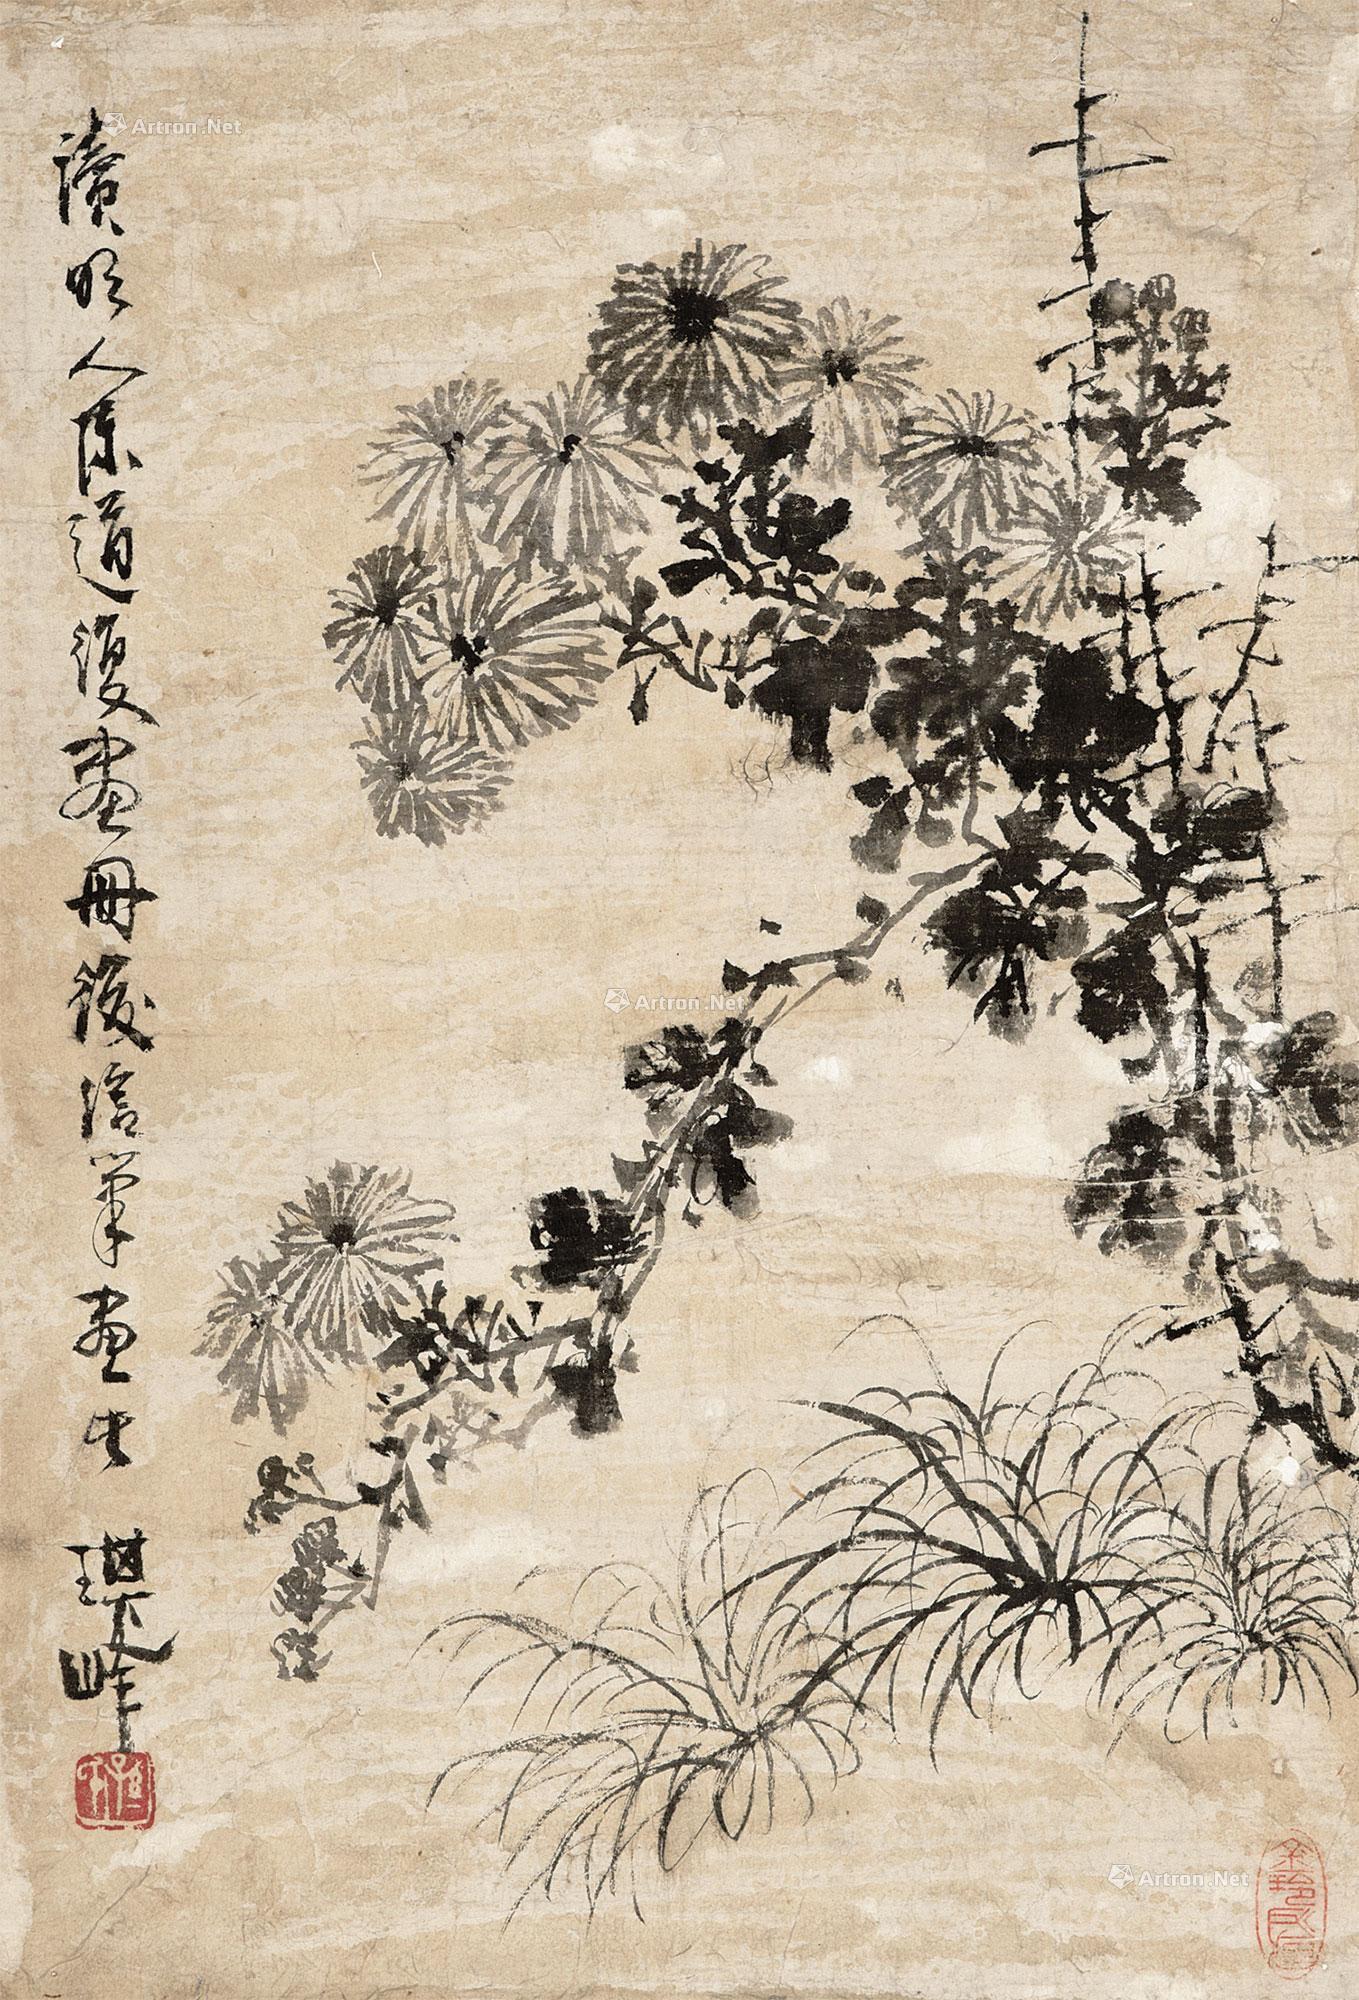 讀明人陳道復畫冊後濡筆畫此 璞峰
Artron.Net
Artron.Net
Artron.Net